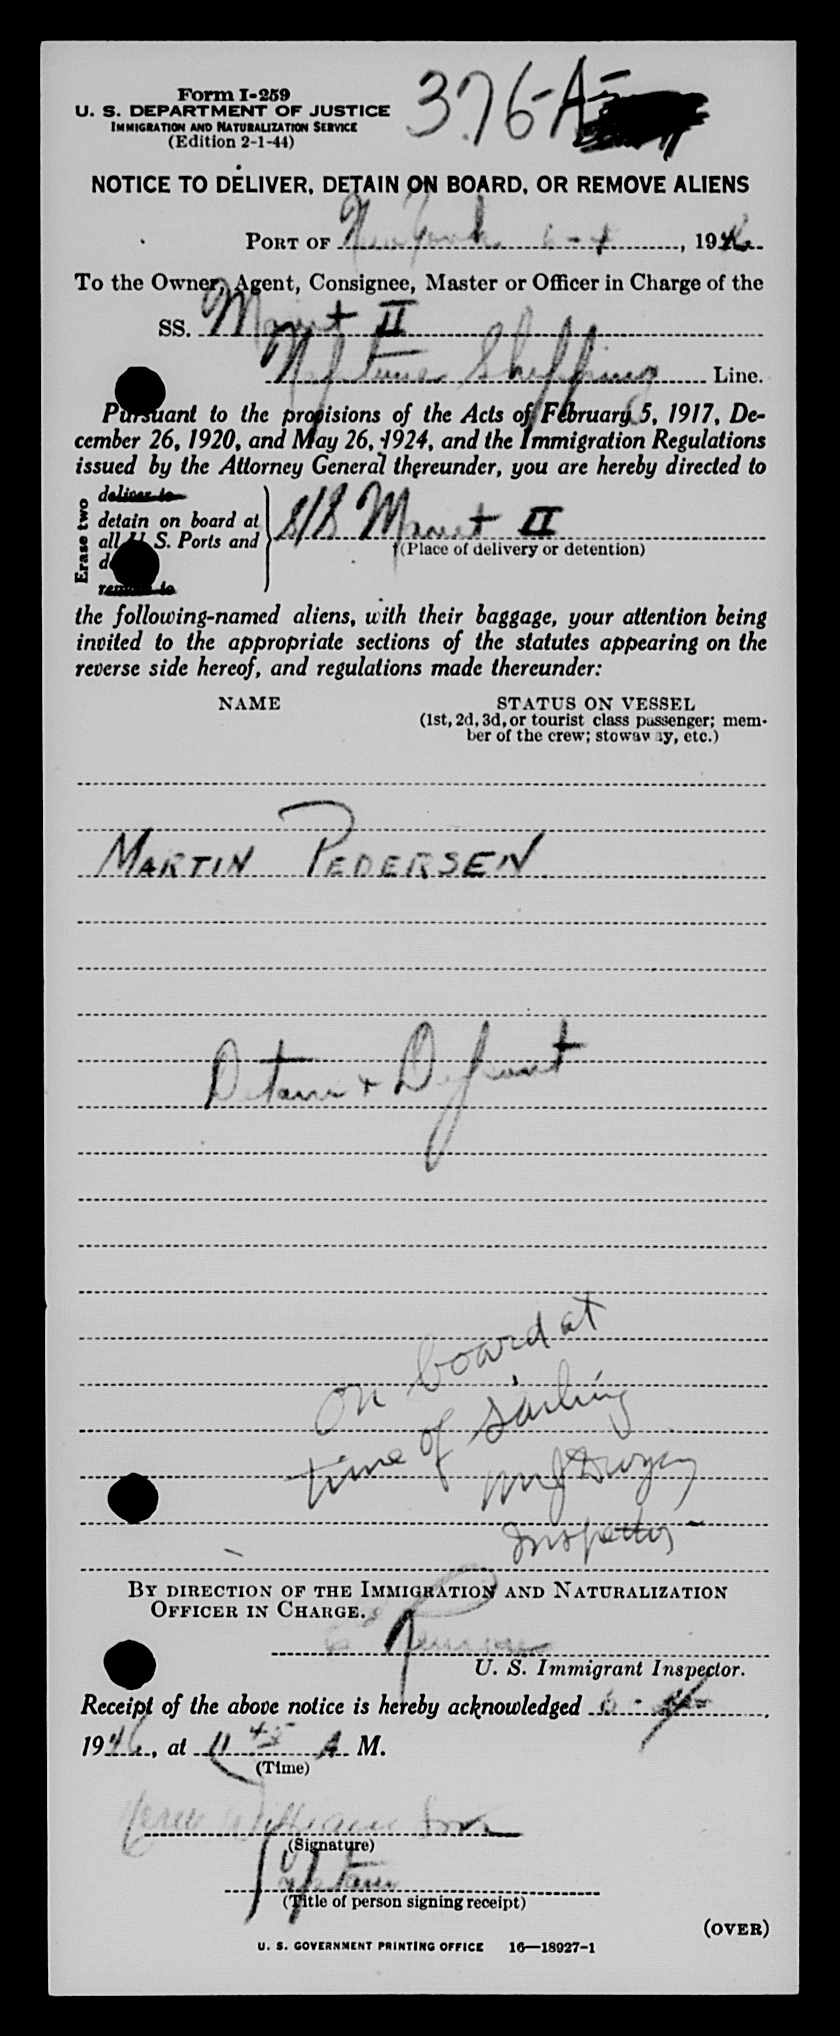 Form I-259
U. S. DEPARTMENT OF JUSTICE
IMMIGRATION AND NATURALIZATION SERVICE
(Edition 2-1-44)
376-A-
NOTICE TO DELIVER, DETAIN ON BOARD, OR REMOVE ALIENS
PORT OF New York 6-4, 1946
To the Owner, Agent, Consignee, Master or Officer in Charge of the
SS. II
Neptune Shipping Line.
Pursuant to the provisions of the Acts of February 5, 1917, De-
cember 26, 1920, and May 26, 1924, and the Immigration Regulations
issued by the Attorney General thereunder, you are hereby directed to
Erase two
deliver to
detain on board at
all U. S. Ports and
remove to
S/S II
(Place of delivery or detention)
the following-named aliens, with their baggage, your attention being
invited to the appropriate sections of the statutes appearing on the
reverse side hereof, and regulations made thereunder:
NAME STATUS ON VESSEL
(1st, 2d, 3d, or tourist class passenger; mem-
ber of the crew; stowaway, etc.)
MARTIN PEDERSEN
Detain + Deport
on board at
time of sailing
Inspector
BY DIRECTION OF THE IMMIGRATION AND NATURALIZATION
OFFICER IN CHARGE.
U. S. Immigrant Inspector.
Receipt of the above notice is hereby acknowledged 6-4-,
1946, at 11 45 A M.
(Time)
William
(Signature)
Captain
(Title of person signing receipt)
(OVER)
U. S. GOVERNMENT PRINTING OFFICE 16—18927-1